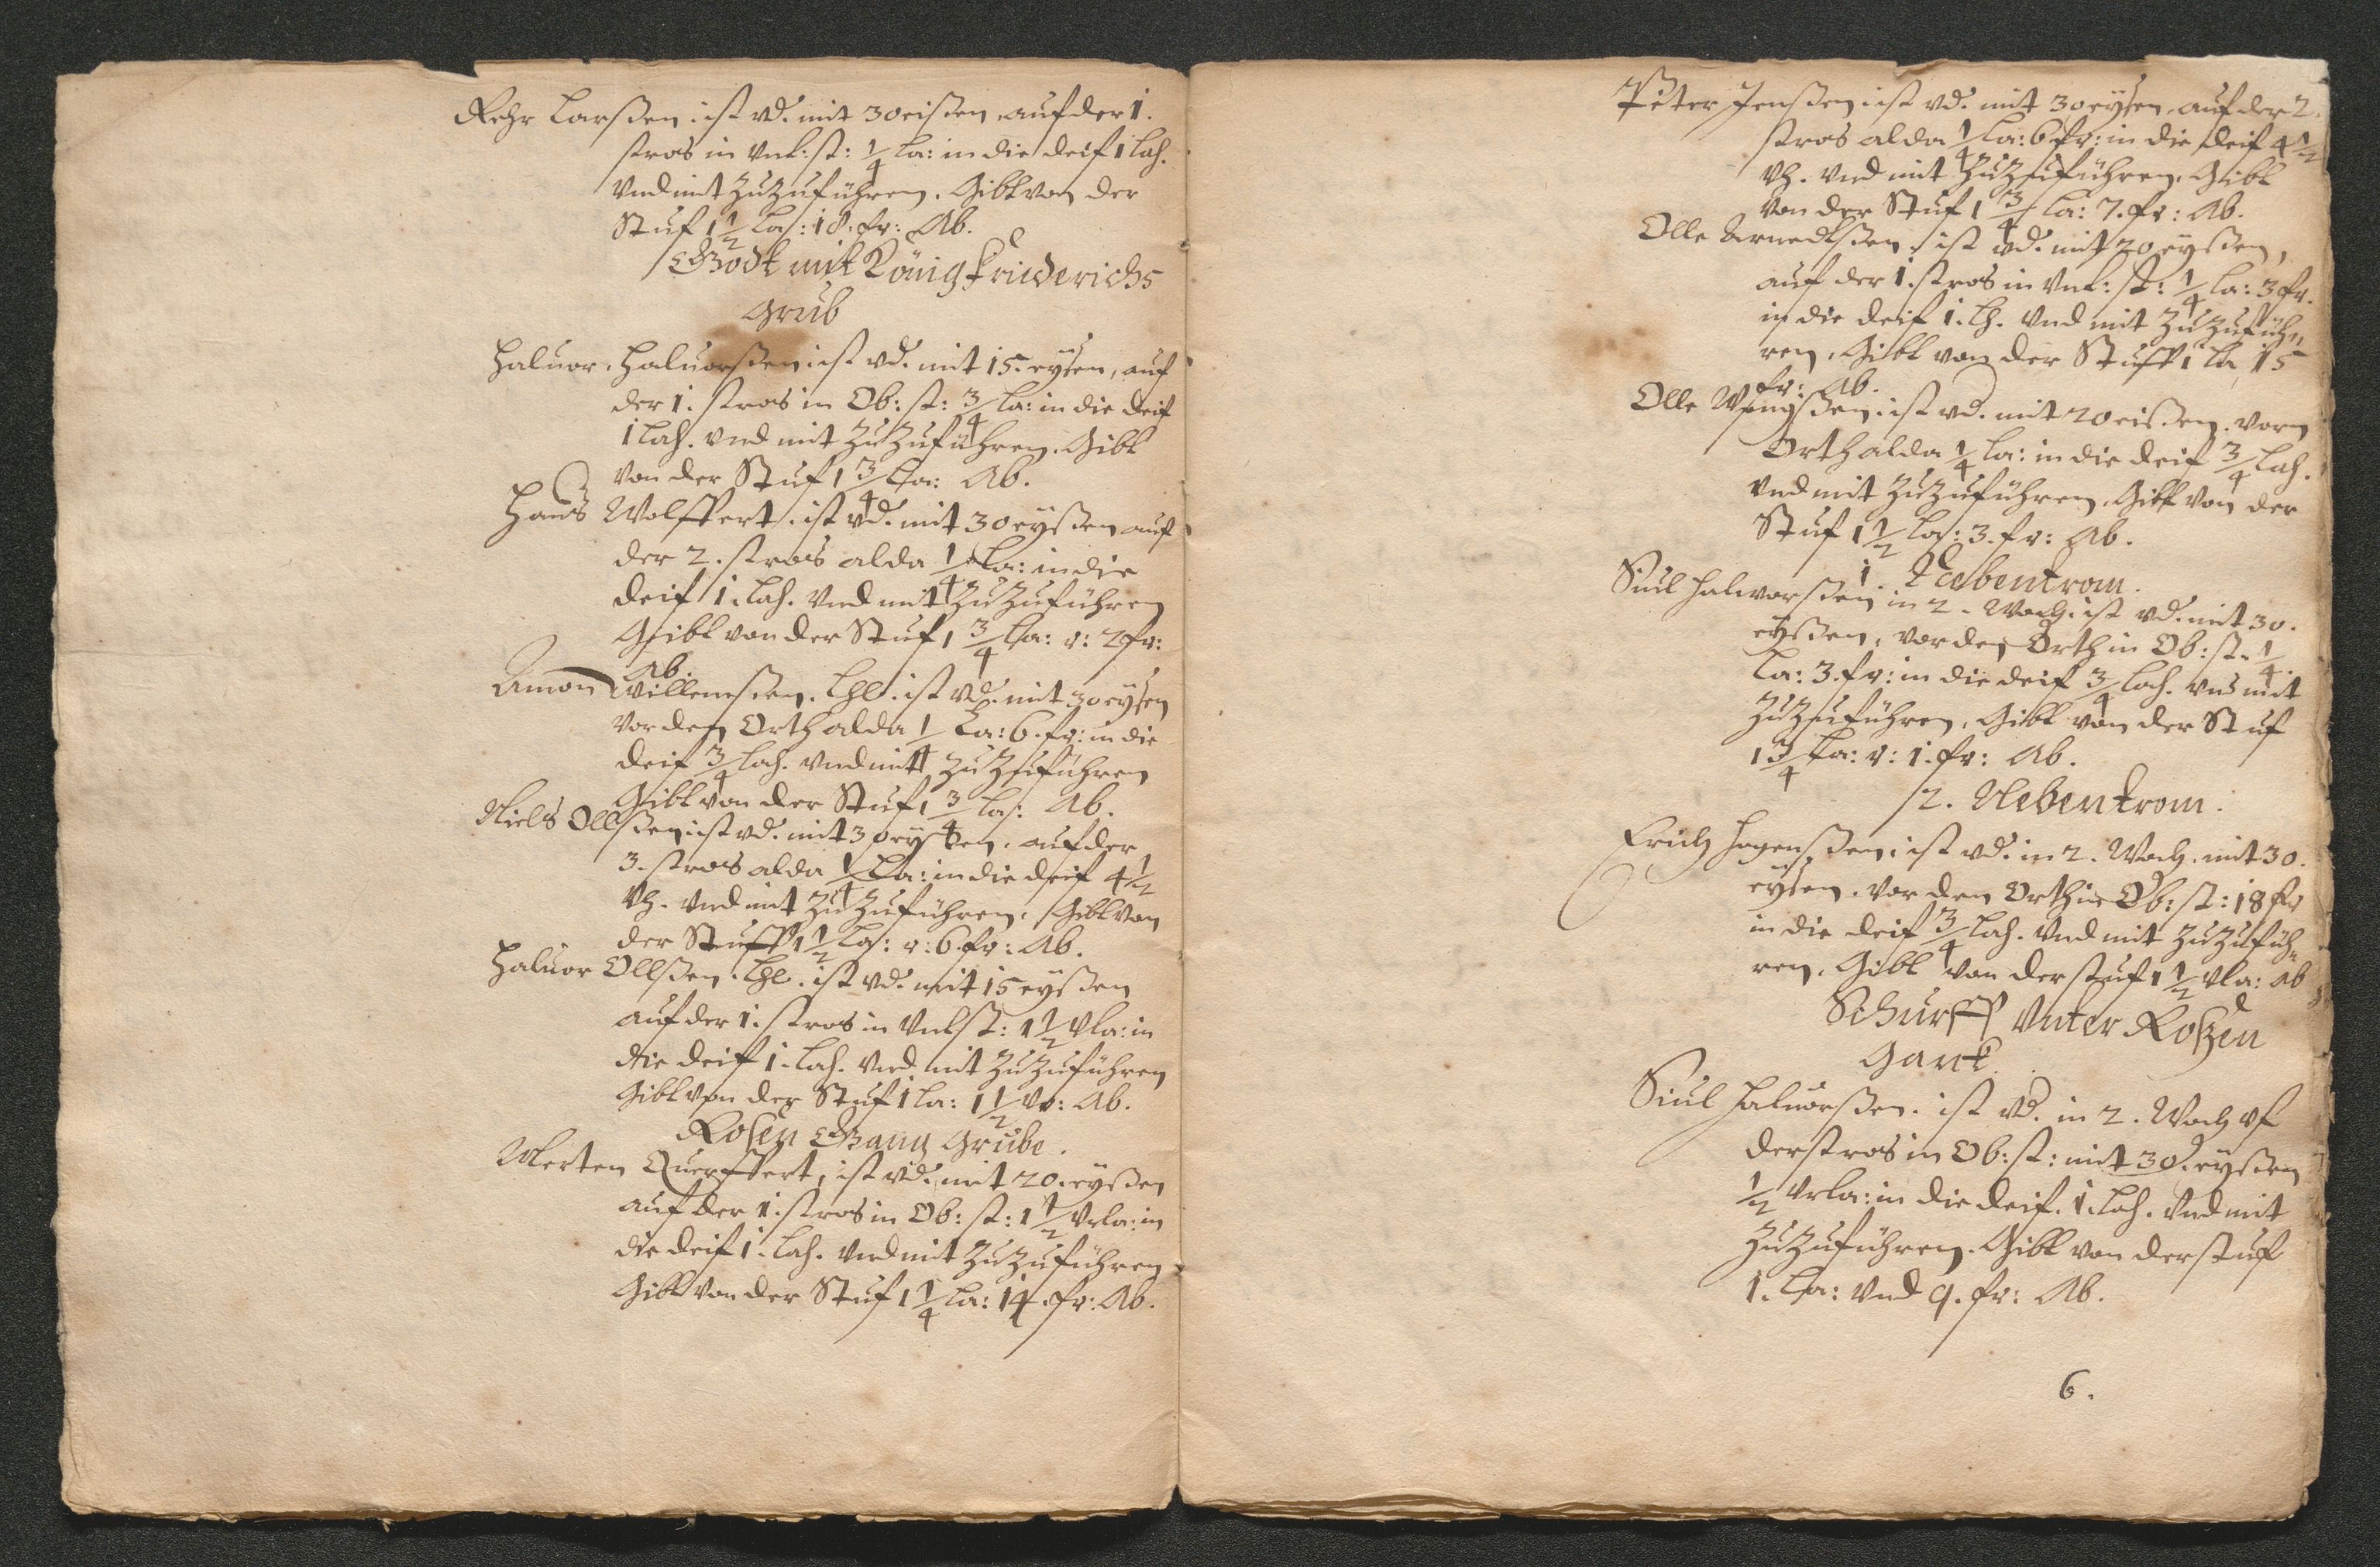 Rehr Larßen. ist vd. mit 30 eißen auf der 1.
stros in vnt: st: 1/4 La: in die deif 1 Lah.
vnd mit zuzuführen. Gibt von der
Stuf 1 1/2 La: 18. fr: Ab.
Godt mit König Friederichs
Grub
Haluor. Haluorßen ist vd. mit 15. eyßen, auf
der 1. stros in Ob: st: 3/4 La: in die deif
1 Lah. vnd mit zuzuführen. Gibt
von der Stuf 1 3/4 La: Ab.
Hans Wolffert. ist vd. mit 30 eyßen auf
der 2. stros alda 1/4 La: in die
deif 1. Lah. vnd mit zuzuführen
Gibt von der Stuf 1 3/4 La: v: 2 fr:
Ab.
Amon Willemßen. Lhl. ist vd. mit 30 eyßen
vor dem Orth alda 1/4 La: 6. fr: in die
deif 3/4 Lah. vnd mit zuzuführen
Gibt von der Stuf 1 3/4 La: Ab.
Niels Ollßen ist vd. mit 30 eyßen. auf der
3. stros alda 1/4 La: in die deif 4 1/2
vh. vnd mit zuzuführen. Gibt von
der Stuff 1 1/2 La: v: 6. fr: Ab.
Haluor Ollßen. Lhl. ist vd. mit 15 eyßen
auf der 1. stros in vnt st: 1 1/2 vla: in
die deif 1. Lah. vnd mit zuzuführen
Gibt von der Stuf 1 La: 1 1/2 vr: Ab.
Rosen Gang Grube.
Merten Querffert, ist vd. mit 20. eyßen
auf der 1. stros in Ob: st: 1 1/2 vrla: in
die deif 1. Lah. vnd mit zuzuführen
Gibt von der Stuf 1 1/4 La: 14. fr: Ab.
Peter Jenßen ist vd. mit 30 eyßen, auf der 2.
stros alda 1/4 La: 6 fr: in die deif 4 1/2
vh. vnd mit zuzuführen. Gibt
von der Stuf 1 3/4 La: 7. fr: Ab.
Olle ist vd. mit 20 eyßen,
auf der 1. stros in vnt: st: 1/4 La: 3 fr.
in die deif 1. Lh. vnd mit zuzufüh=
ren. Gibt von der Stuff 1 La 15
fr: Ab.
Olle ist vd. mit 20 eißen. vorm
Orth alda 1/4 La: in die deif 3/4 Lah.
vnd mit zuzuführen. Gibt von der
Stuf 1 1/2 La: 3. fr: Ab.
1. Nebentrom.
Siul Halvorßen in 2. Woch. ist vd. mit 30.
eyßen, vor dem Orth in Ob: st: 1/4
La: 3. fr: in die deif 3/4 Lah. vnd mit
zuzuführen, Gibt von der Stuf
1 3/4 La: v: 1. fr: Ab.
2. Nebentrom.
Erich Hagenßen. ist vd. in 2. Woch. mit 30.
eyßen. vor dem Orth in Ob: st: 18 fr
in die deif 3/4 Lah. vnd mit zuzufüh=
ren. Gibt von der stuf 1 1/2 vla: Ab
Schurff vnter Roßen
Gank.
Siul Haluorßen. ist vd. in 2. Woch vf
der stros in Ob: st: mit 30. eyßen
1/2 vrla: in die deif. 1. Lah. vnd mit
zuzuführen. Gibt von der stuf
1. La: vnd 9. fr: Ab.
6.